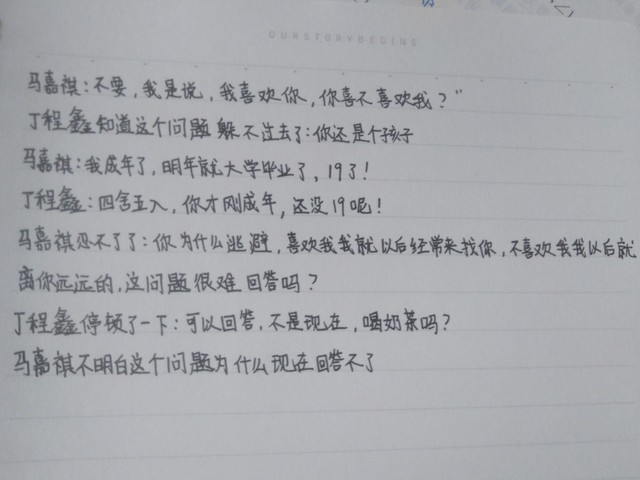 OURSTORYBEGINS
马嘉祺:不要,我是说,我喜欢你,你喜不喜欢我?"
丁程鑫知道这个问题躲不过去了:你还是个孩子
马嘉祺:我成年了,明年就大学毕业了,19了!
丁程鑫:四舍五入,你才刚成年,还没19呢!
马嘉祺忍不了了:你为什么逃避,喜欢我我就以后经常来找你,不喜欢我我以后就
离你远远的,这问题很难回答吗?
丁程鑫停顿了一下:可以回答,不是现在,喝奶茶吗?
马嘉祺不明白这个问题为什么现在回答不了